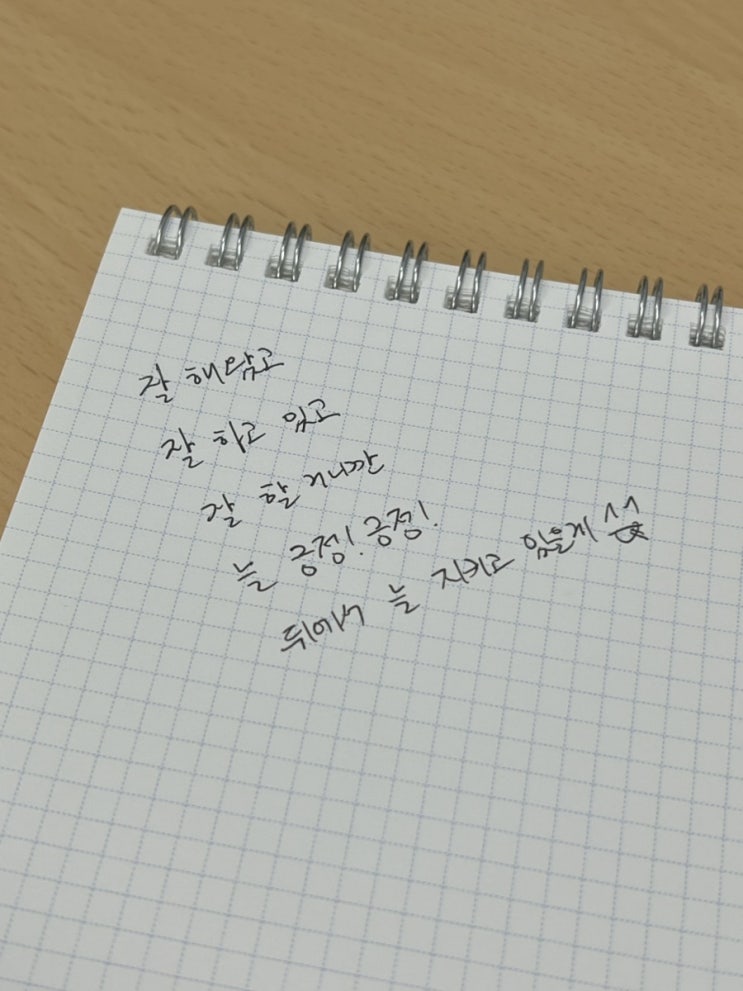 잘 해왔고
잘 하고 있고
잘 할 거니깐
늘 긍정! 긍정!
뒤에서 늘 지키고 있을게